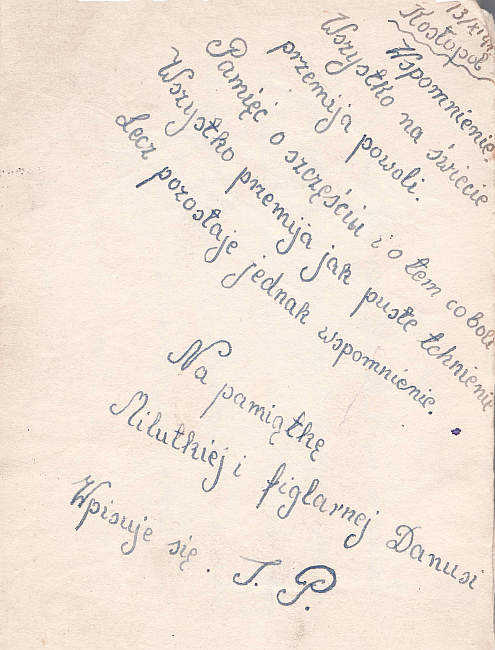 13/XI 44
Kostopol
Wspomnienie.
Wszystko na świecie
przemija powoli.
Pamięć o szczęściu i o tem co boli
Wszystko przemija jak puste tchnienie
Lecz pozostaje jednak wspomnienie.
Na pamiątkę
Milutkiej i figlarnej Danusi
Wpisuje się. J. P.